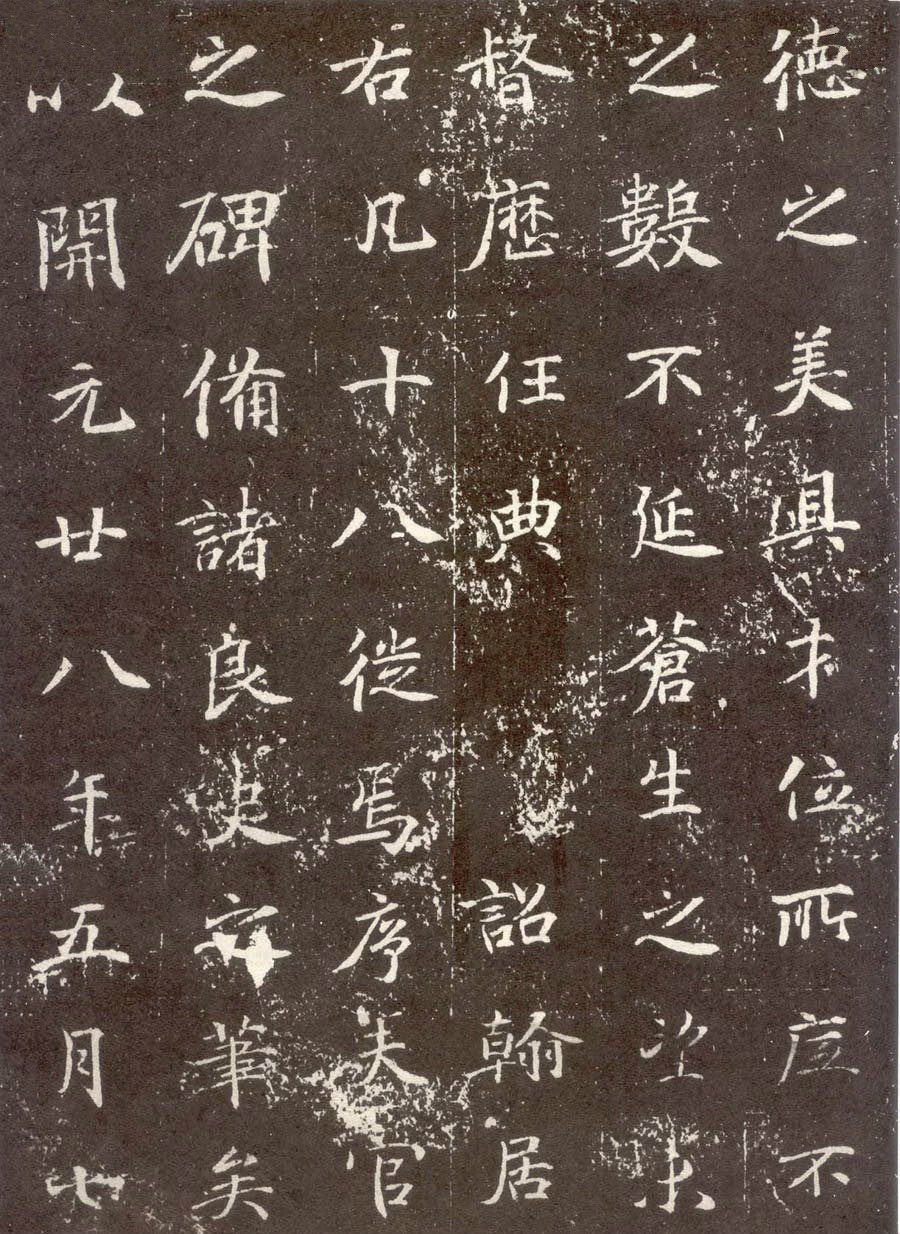 德之美才位所不
之數不延蒼生之望未
督歷任典詔翰居
右凡十八徙焉序夫官
之碑備諸良史筆矣
以開元廿八年五月七